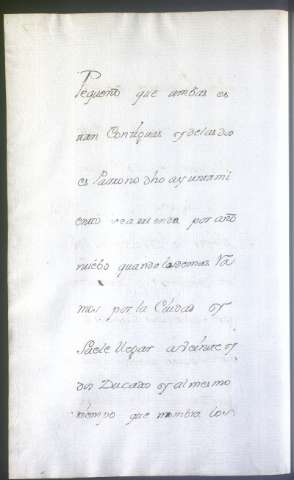 Pequeño que ambas es
tan Contiguas y de las dos
es Patrono dho ayuntami
ento rearrienda por año
nuebo quando las demas Ra
mas por la Ciudad y
Suele llegar a veinte y
dos Ducados y al mismo
tiempo que nombra los